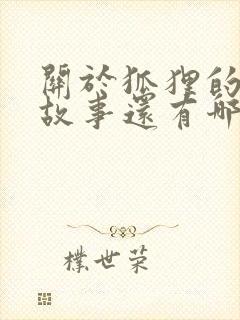 關於狐狸的
故事還有哪
樸世荣